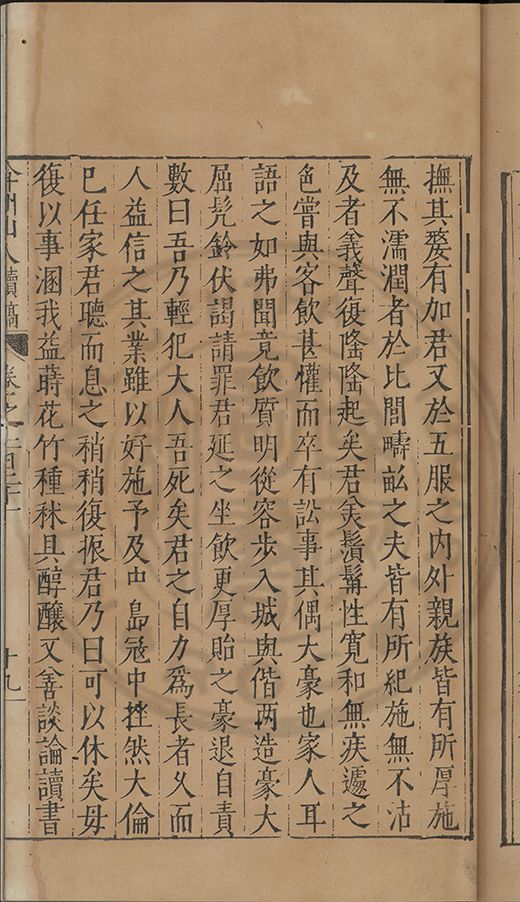 撫其嫠有加君又於五服之内外親族皆有所厚施
無不濡潤者於比閭疇畝之夫皆有所紀施無不沾
及者義聲復隆隆起矣君美鬚髯性寛和無疾遽之
色嘗與客飲甚懽而卒有訟事其偶大豪也家人耳
語之如弗聞竟飲質明從容步入城與偕兩造豪大
屈髠鈴伏謁請罪君延之坐飲更厚貽之豪退自責
數曰吾乃輕犯大人吾死矣君之自力爲長者乆而
人益信之其業雖以好施予及中島冦中挫然大倫
巳任家君聽而息之稍稍復振君乃曰可以休矣毋
復以事溷我益蒔花竹種秫具醇醲又善談論讀書
弇州山人續稿 卷之一百二十一 十九